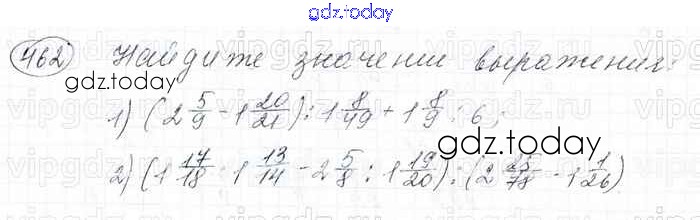 gdz.today
462) Найдите значении выражения:
gdz.today
1) (2 5/9 - 1 20/21) : 1 8/49 + 1 8/9 : 6;
gdz.today
2) (1 17/18 · 1 13/14 - 2 5/8 : 1 19/20) : (2 25/78 - 1 1/26)